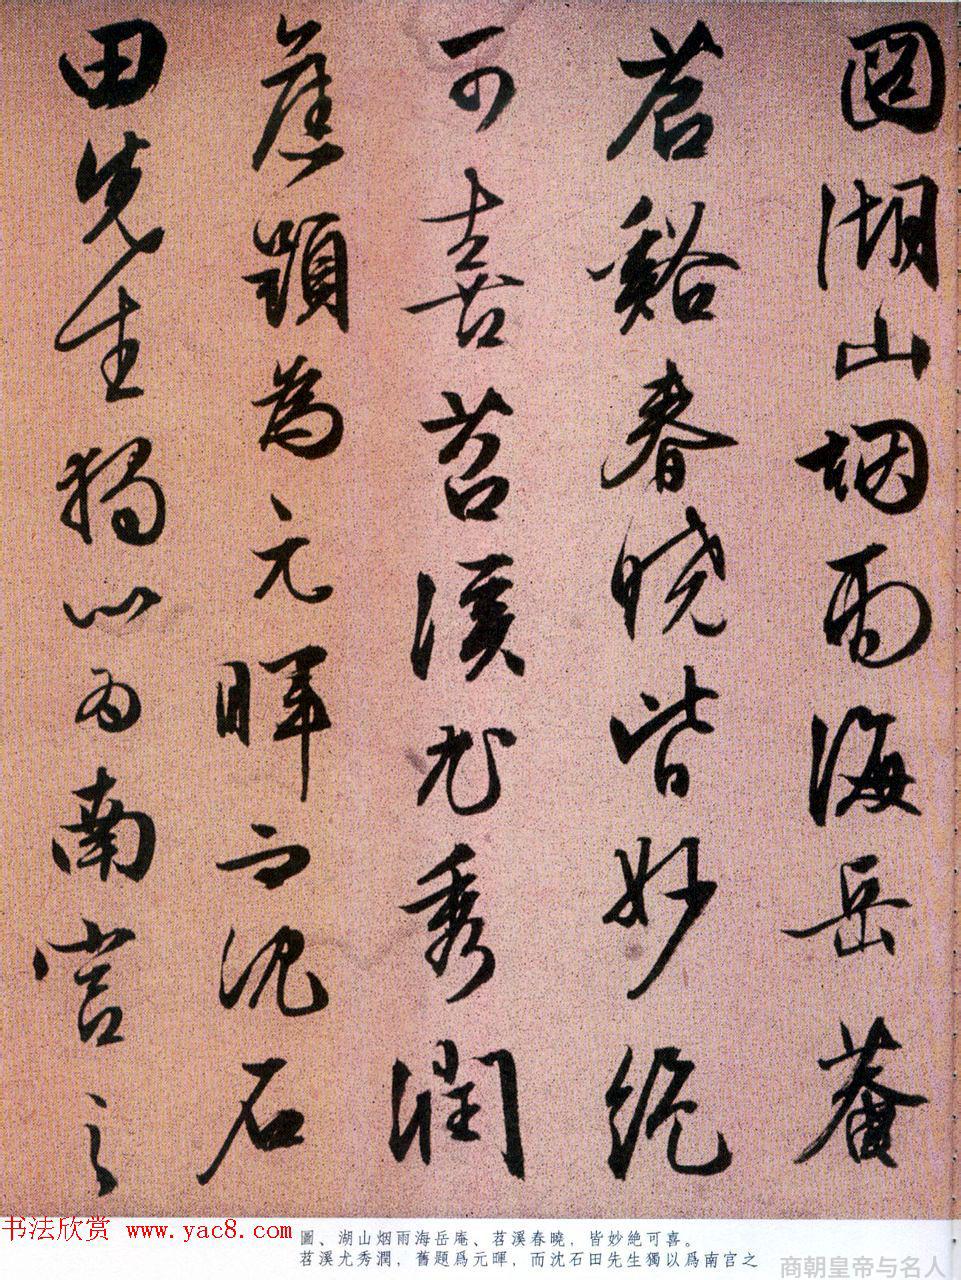 圖湖山烟雨海岳菴
苕谿春曉皆妙絶
可喜苕溪尤秀潤
舊題為元暉而沈石
田先生獨以為南宫之
圖、湖山烟雨海岳庵、苕溪春曉，皆妙絶可喜。
苕溪尤秀潤，舊題爲元暉，而沈石田先生獨以爲南宫之
书法欣赏 www.yac8.com
商朝皇帝与名人